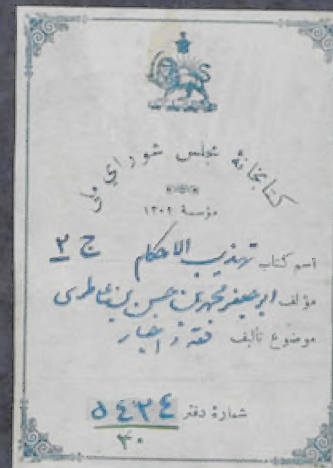 کتابخانهٔ مجلس شورای ملی
مؤسسهٔ ۱۳۰۲
اسم کتاب تهذیب الاحکام ج ۲
مؤلف ابو جعفر محمد بن حسن بن علی طوسی
موضوع تألیف فقه و اخبار
شمارهٔ دفتر ۵۴۲۴
۳۰